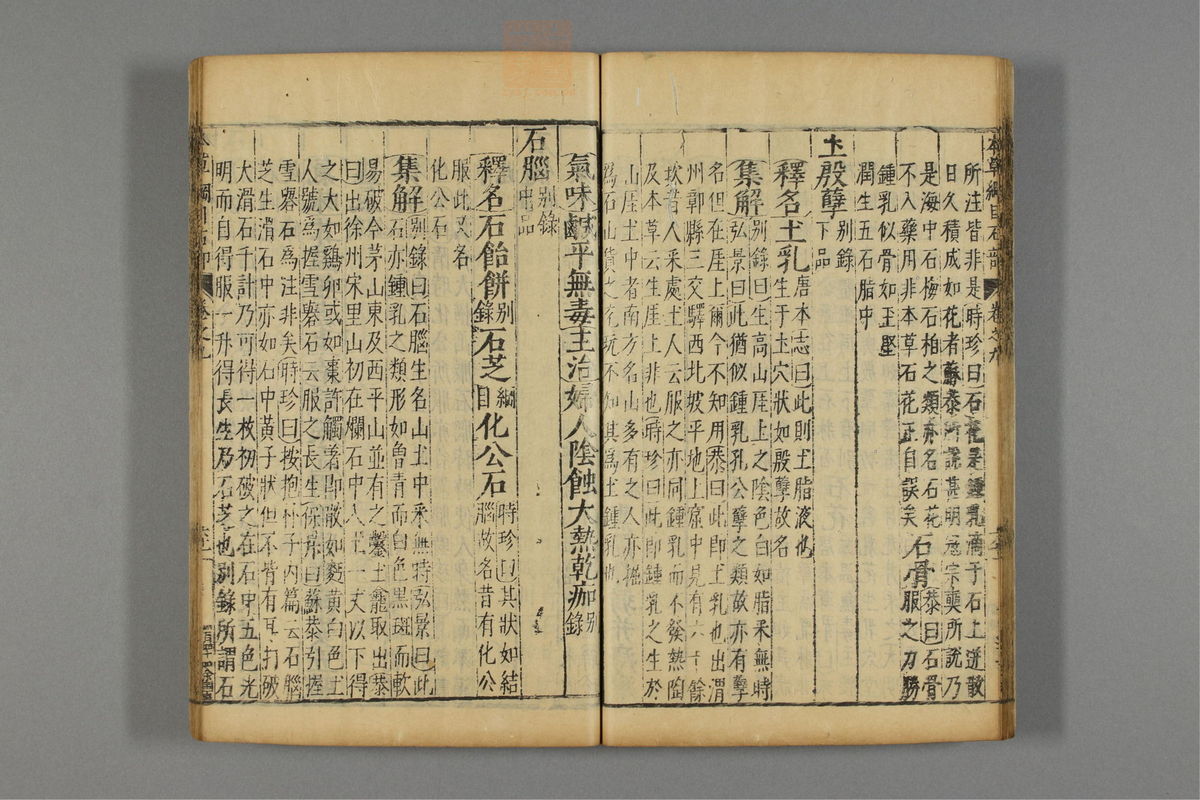 本草綱目石部 卷之九
所注皆非是時珍曰石花是鍾乳滴于石上迸散
日久積成如花者蘇恭所說甚明寇宗奭所說乃
是海中石梅石柏之類亦名石花
不入藥用非本草石花正自誤矣 石骨恭曰石骨服之力勝
鍾乳似骨如玉堅
潤生五石脂中
土殷孽别錄下品
釋名土乳唐本志曰此則土脂液也
生于土穴狀如殷孽故名
集解别錄曰生高山厓上之陰色白如脂采無時
弘景曰此猶似鍾乳孔公孽之類故亦有孽
名但在厓上爾今不知用恭曰此即土乳也出渭
州鄣縣三交驛西北坡平地上窟中見有六十餘
坎昔人采處土人云服之亦同鍾乳而不發熱陶
及本草云生厓上非也時珍曰此即鍾乳之生於
山厓土中者南方名山多有之人亦掘
爲石山貨之充玩不知其爲土鍾乳也
氣味鹹平無毒主治婦人陰蝕大熱乾痂别錄
石腦别錄中品
釋名石飴餅别錄石芝綱目化公石時珍曰其狀如結
腦故名昔有化公
服此又名
化公石
集解别錄曰石腦生名山土中采無時弘景曰此
石亦鍾乳之類形如曾青而白色黑斑而軟
易破今茅山東及西平山並有之鑿土龕取出恭
曰出徐州宋里山初在爛石中入土一丈以下得
之大如雞卵或如棗許觸著即散如麪黃白色土
人號爲握雪礜石云服之長生保昇曰蘇恭引握
雪礜石爲注非矣時珍曰按抱朴子內篇云石腦
芝生滑石中亦如石中黃子狀但不皆有耳打破
大滑石千計乃可得一枚初破之在石中五色光
明而自得服一升得長生乃石芝也别錄所謂石